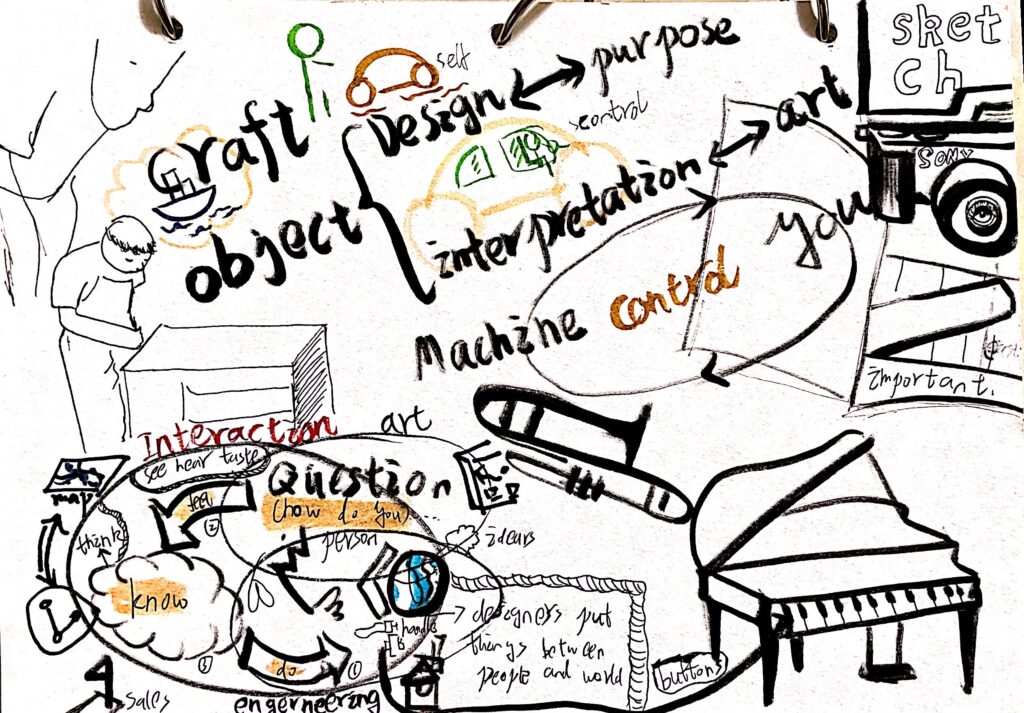 sket
ch
SONY
self
Craft
Design
purpose
control
object
interpretation
art
you
Machine control
important.
Interaction
art
see hear taste
Question
(how do you)...
map
feel
(2)
think
person
idears
know
handle
designers put
things between
people and world
(3)
do
(1)
buttons
sales
engerneering